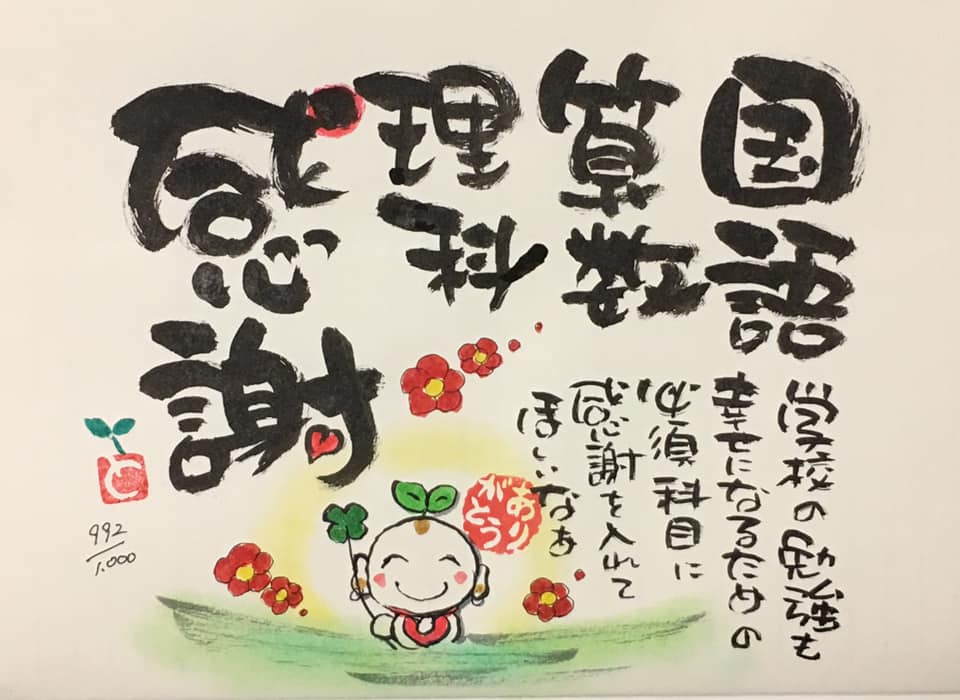 国語
算数
理科
感謝
学校の勉強も
幸せになるための
必須科目に
感謝を入れて
ほしいなぁ
ありがとう
と
992/1.000